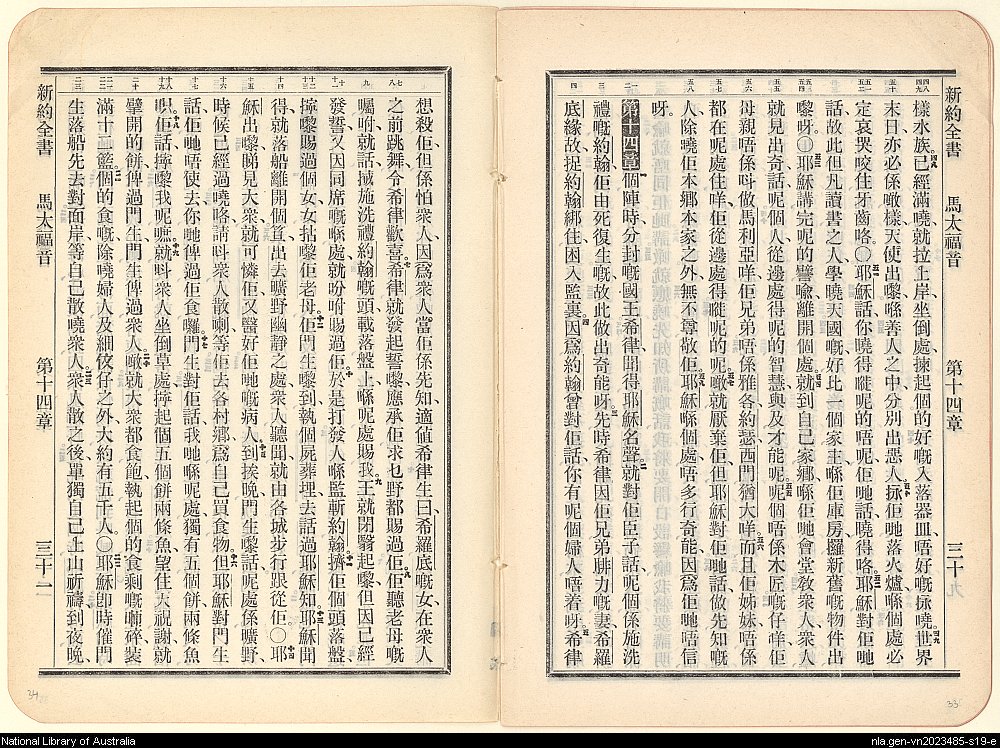 新約全書 馬太福音 第十四章 三十
樣水族已經滿嘵就拉上岸坐倒處揀起個的好嘅入落器皿唔好嘅𢱕嘵世界
末日亦必係噉樣天使出嚟喺善人之中分別出惡人𢱕佢哋落火爐喺個處必
定哀哭咬住牙齒咯〇耶穌話你嘵得嘥呢的唔呢佢哋話嘵得咯耶穌對佢哋
話故此但凡讀書之人學嘵天國嘅好比一個家主喺佢庫房攞新舊嘅物件出
嚟呀〇耶穌講完呢的譬喻離開個處就到自己家鄉喺佢哋會堂敎衆人衆人
就見出奇話呢個人從邊處得呢的智慧與及才能呢呢個唔係木匠嘅仔咩佢
母親唔係呌做馬利亞咩佢兄弟唔係雅各約瑟西門猶大咩而且佢姊妹唔係
都在呢處住咩佢從邊處得嘥呢的呢噉就厭棄佢但耶穌對佢哋話做先知嘅
人除嘵佢本鄉本家之外無不尊敬佢耶穌喺個處唔多行奇能因爲佢哋唔信
呀
第十四章 個陣時分封嘅國王希律聞得耶穌名聲就對佢臣子話呢個係施洗
禮嘅約翰佢由死復生嘅故此做出奇能呀先時希律因佢兄弟腓力嘅妻希羅
底緣故捉約翰綁住囚入監裏因爲約翰曾對佢話你有呢個婦人唔着呀希律
新約全書 馬太福音 第十四章 三十二
想殺佢但係怕衆人因爲衆人當佢係先知適值希律生日希羅底嘅女在衆人
之前跳舞令希律歡喜希律就發起誓嚟應承佢求乜野都賜過佢佢聽老母嘅
囑咐就話搣施洗禮約翰嘅頭載落盤上喺呢處賜我王就閉翳起嚟但因已經
發誓又因同席嘅喺處就吩咐賜過佢於是打發人喺監斬約翰擠佢個頭落盤
擰嚟賜過個女女拈嚟佢老母佢門生嚟到執個屍葬埋去話過耶穌知耶穌聞
得就落船離開個笪出去曠野幽靜之處衆人聽聞就由各城步行跟從佢〇耶
穌出嚟睇見大衆就可憐佢又醫好佢哋嘅病人到挨晚門生嚟話呢處係曠野
時候已經過嘵咯請呌衆人散喇等佢去各村鄉爲自己買食物但耶穌對門生
話佢哋唔使去你哋俾過佢食囉門生對佢話我哋喺呢處獨有五個餠兩條魚
呮佢話擰嚟我呢處就呌衆人坐倒草處擰起個五個餠兩條魚望住天祝謝就
擘開的餠俾過門生門生俾過衆人噉就大衆都食飽執起個的食剩嘅嘣碎裝
滿十二籃個的食嘅除嘵婦人及細佼仔之外大約有五千人〇耶穌卽時催門
生落船先去對面岸等自己散嘵衆人衆人散之後單獨自己上山祈禱到夜晚
34
33
National Library of Australia
nla.gen-vn2023485-s19-e